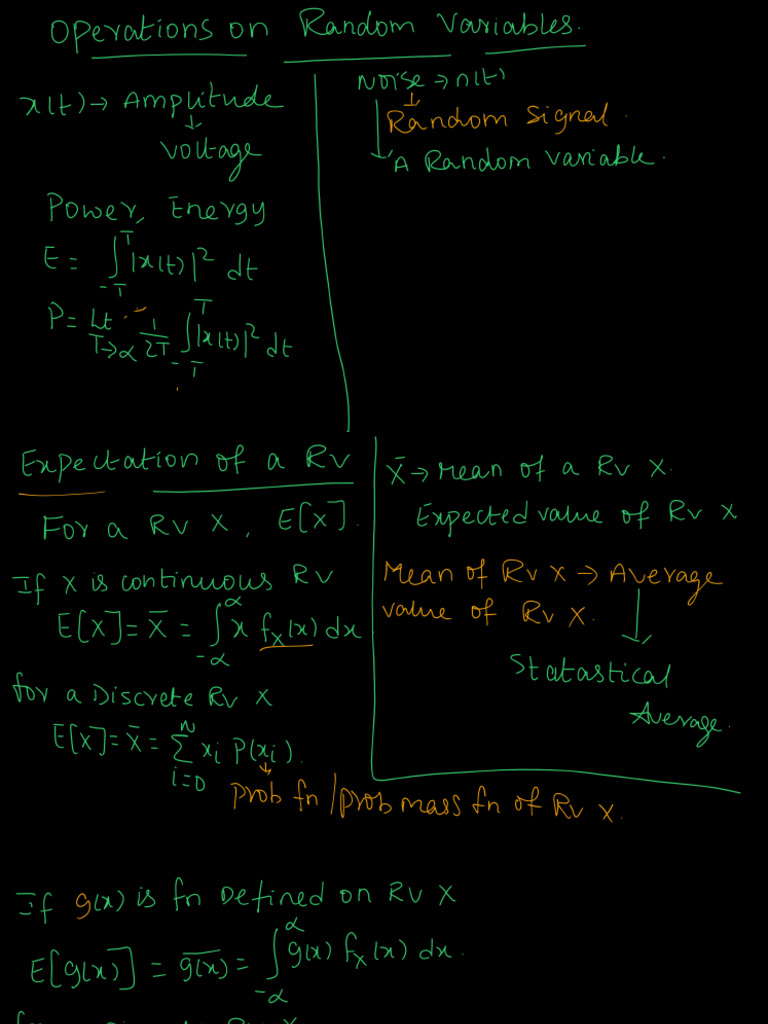 Operations on Random Variables.
x(t) → Amplitude
↓
voltage
Power, Energy
E = ∫_{-T}^{T} |x(t)|² dt
P = Lt_{T→∝} 1/2T ∫_{-T}^{T} |x(t)|² dt
Noise → n(t)
Random Signal.
A Random variable.
Expectation of a RV
For a RV X, E[X].
If X is continuous RV
E[X] = X̄ = ∫_{-∝}^{∝} x f_X(x) dx
for a Discrete RV X
E[X] = X̄ = Σ_{i=0}^{N} xi P(xi).
prob fn / prob mass fn of RV X.
X̄ → mean of a RV X.
Expected value of RV X
Mean of RV X → Average
value of RV X.
Statastical
Average.
If g(x) is fn Defined on RV X
E[g(x)] = \overline{g(x)} = ∫_{-∝}^{∝} g(x) f_X(x) dx.